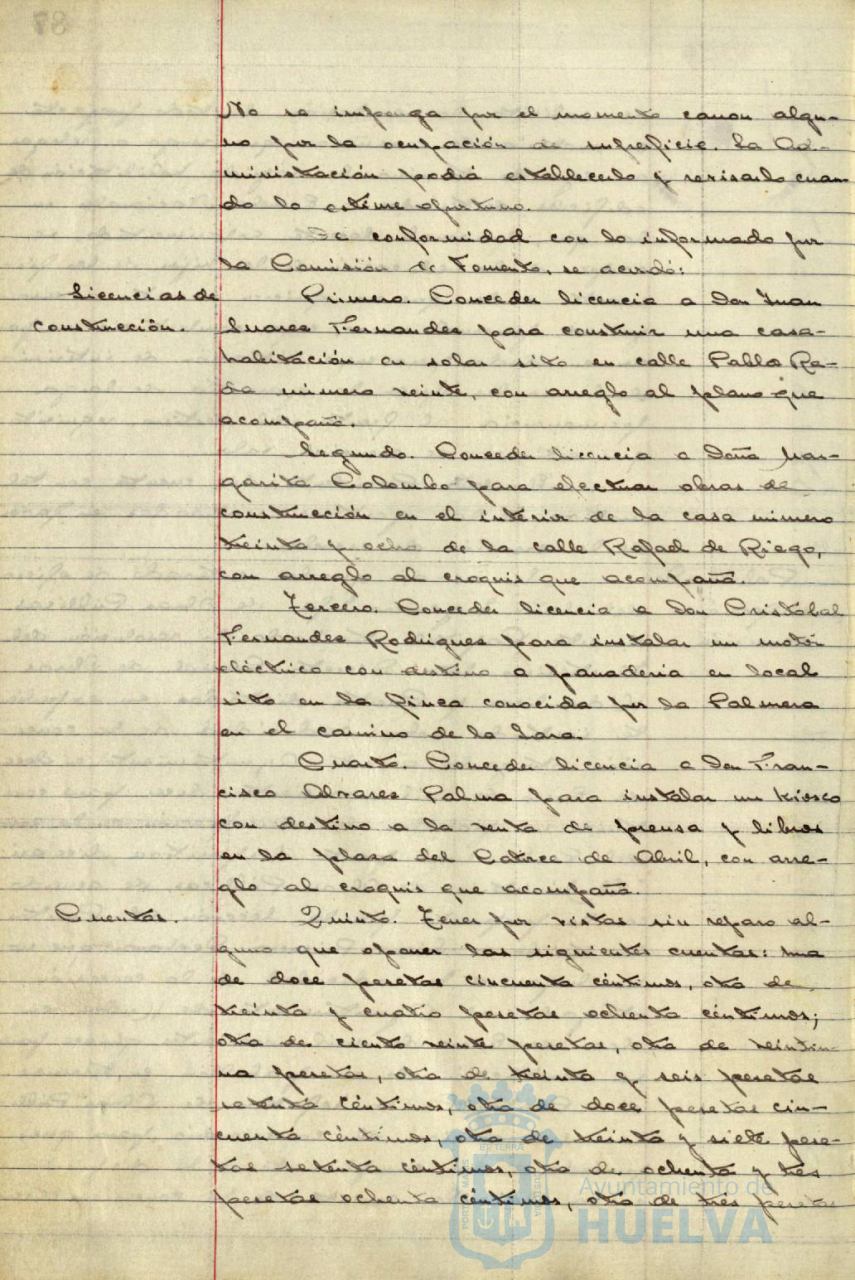 No se imponga por el momento canon algu-
no por la ocupación de superficie. La Ad-
ministración podrá establecerlo y revisarlo cuan-
do lo estime oportuno.
De conformidad con lo informado por
la Comisión de Fomento, se acordó:
Licencias de
construcción.
Primero. Conceder licencia a Don Juan
Suarez Fernandez para construir una casa-
habitación en solar sito en calle Pablo Ra-
da número veinte, con arreglo al plano que
acompaña.
Segundo. Conceder licencia a Doña Mar-
garita Colombo para efectuar obras de
construcción en el interior de la casa número
treinta y ocho de la calle Rafael de Riego,
con arreglo al croquis que acompaña.
Tercero. Conceder licencia a Don Cristobal
Fernandez Rodriguez para instalar un motor
eléctrico con destino a panaderia en local
sito en la finca conocida por la Palmera
en el camino de la
Cuarto. Conceder licencia a Don Fran-
cisco Alvarez Palma para instalar un kiosco
con destino a la venta de prensa y libros
en la plaza del Catorce de Abril, con arre-
glo al croquis que acompaña.
Cuentas.
Quinto. Tener por vistas sin reparo al-
guno que oponer las siguientes cuentas: una
de doce pesetas cincuenta céntimos, otra de
treinta y cuatro pesetas ochenta céntimos;
otra de ciento veinte pesetas, otra de veintiu-
na pesetas, otra de treinta y seis pesetas
setenta céntimos, otra de doce pesetas cin-
cuenta céntimos, otra de treinta y siete pese-
tas setenta céntimos, otra de ochenta y tres
pesetas ochenta céntimos, otra de tres pesetas
Ayuntamiento de
HUELVA